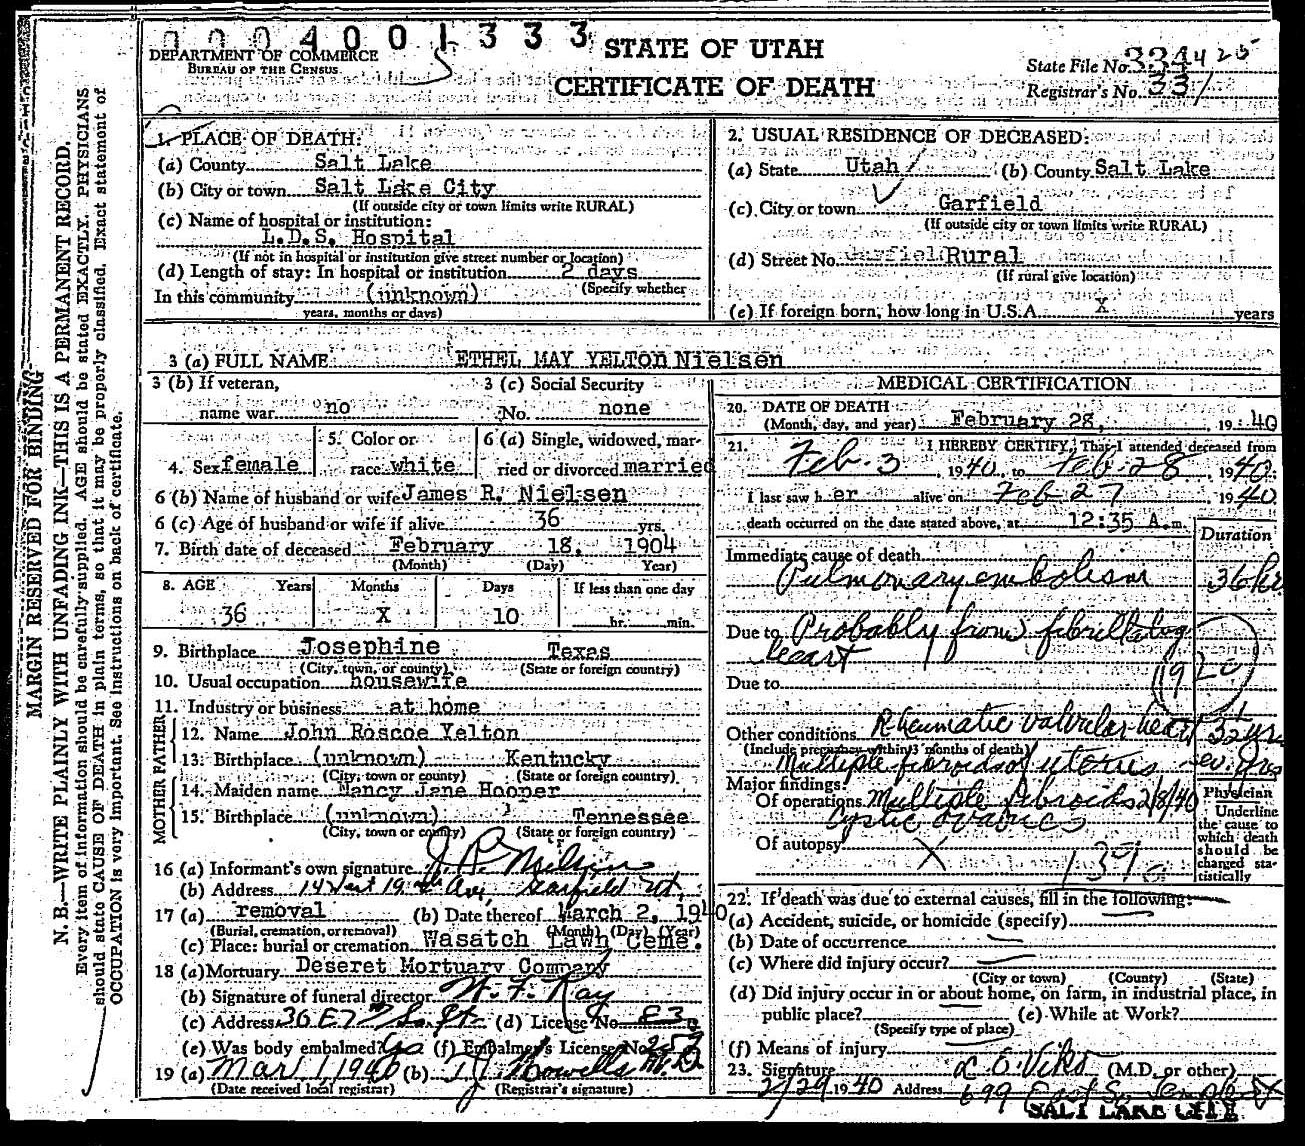 0004001333
DEPARTMENT OF COMMERCE
BUREAU OF THE CENSUS
STATE OF UTAH
CERTIFICATE OF DEATH
State File No.
Registrar's No. 331
MARGIN RESERVED FOR BINDING
N. B.—WRITE PLAINLY WITH UNFADING INK—THIS IS A PERMANENT RECORD.
Every item of information should be carefully supplied. AGE should be stated EXACTLY. PHYSICIANS
should state CAUSE OF DEATH in plain terms, so that it may be properly classified. Exact statement of
OCCUPATION is very important. See instructions on back of certificate.
1. PLACE OF DEATH:
(a) County Salt Lake
(b) City or town Salt Lake City
(If outside city or town limits write RURAL)
(c) Name of hospital or institution:
L.D.S. Hospital
(If not in hospital or institution give street number or location)
(d) Length of stay: In hospital or institution 2 days
(Specify whether
In this community (unknown)
years, months or days)
2. USUAL RESIDENCE OF DECEASED:
(a) State Utah (b) County Salt Lake
(c) City or town Garfield
(If outside city or town limits write RURAL)
(d) Street No. Garfield Rural
(If rural give location)
(e) If foreign born, how long in U.S.A. X years
3 (a) FULL NAME ETHEL MAY YELTON Nielsen
3 (b) If veteran, name war no
3 (c) Social Security No. none
4. Sex female
5. Color or race white
6 (a) Single, widowed, married or divorced married
6 (b) Name of husband or wife James R. Nielsen
6 (c) Age of husband or wife if alive 36 yrs.
7. Birth date of deceased February 18, 1904
(Month) (Day) Year)
8. AGE Years Months Days If less than one day
36 X 10 hr. min.
9. Birthplace Josephine Texas
(City, town, or county) (State or foreign country)
10. Usual occupation housewife
11. Industry or business at home
FATHER
12. Name John Roscoe Yelton
13. Birthplace (unknown) Kentucky
(City, town or county) (State or foreign country)
MOTHER
14. Maiden name Nancy Jane Hooper
15. Birthplace (unknown) Tennessee
(City, town or county) (State or foreign country)
16 (a) Informant's own signature J. R. Nielsen
(b) Address 14 West 19th Ave, Garfield Ut.
17 (a) removal (b) Date thereof March 2, 1940
(Burial, cremation, or removal) (Month) (Day) (Year)
(c) Place: burial or cremation Wasatch Lawn Ceme.
18 (a) Mortuary Deseret Mortuary Company
(b) Signature of funeral director W. F. Ray
(c) Address 36 E 7th So. St. (d) License No. 23
(e) Was body embalmed? (f) Embalmer's License No.
19 (a) Mar 1 1940 (b) T. J. Howells M.D.
(Date received local registrar) (Registrar's signature)
MEDICAL CERTIFICATION
20. DATE OF DEATH
(Month, day, and year) February 28, 19 40
21. I HEREBY CERTIFY, That I attended deceased from
Feb. 3 1940 to Feb 28 1940.
I last saw her alive on Feb 27 1940
death occurred on the date stated above, at 12:35 A.m.
Duration
Immediate cause of death
Pulmonary embolism 36 hr
Due to Probably from fibrillating
heart
Due to
Other conditions Rheumatic valvular heart 32 yrs
(Include pregnancy within 3 months of death)
Multiple fibroids of uterus sev. yrs
Major findings:
Of operations Multiple fibroids 2/8/40
Cystic ovaries
Of autopsy X
139a
Physician
Underline
the cause to
which death
should be
charged sta-
tistically
22. If death was due to external causes, fill in the following:
(a) Accident, suicide, or homicide (specify)
(b) Date of occurrence
(c) Where did injury occur?
(City or town) (County) (State)
(d) Did injury occur in or about home, on farm, in industrial place, in
public place? (e) While at Work?
(Specify type of place)
(f) Means of injury
23. Signature L. E. Viko (M.D. or other)
2/29 1940 Address 699 East So. Temple St
SALT LAKE CITY